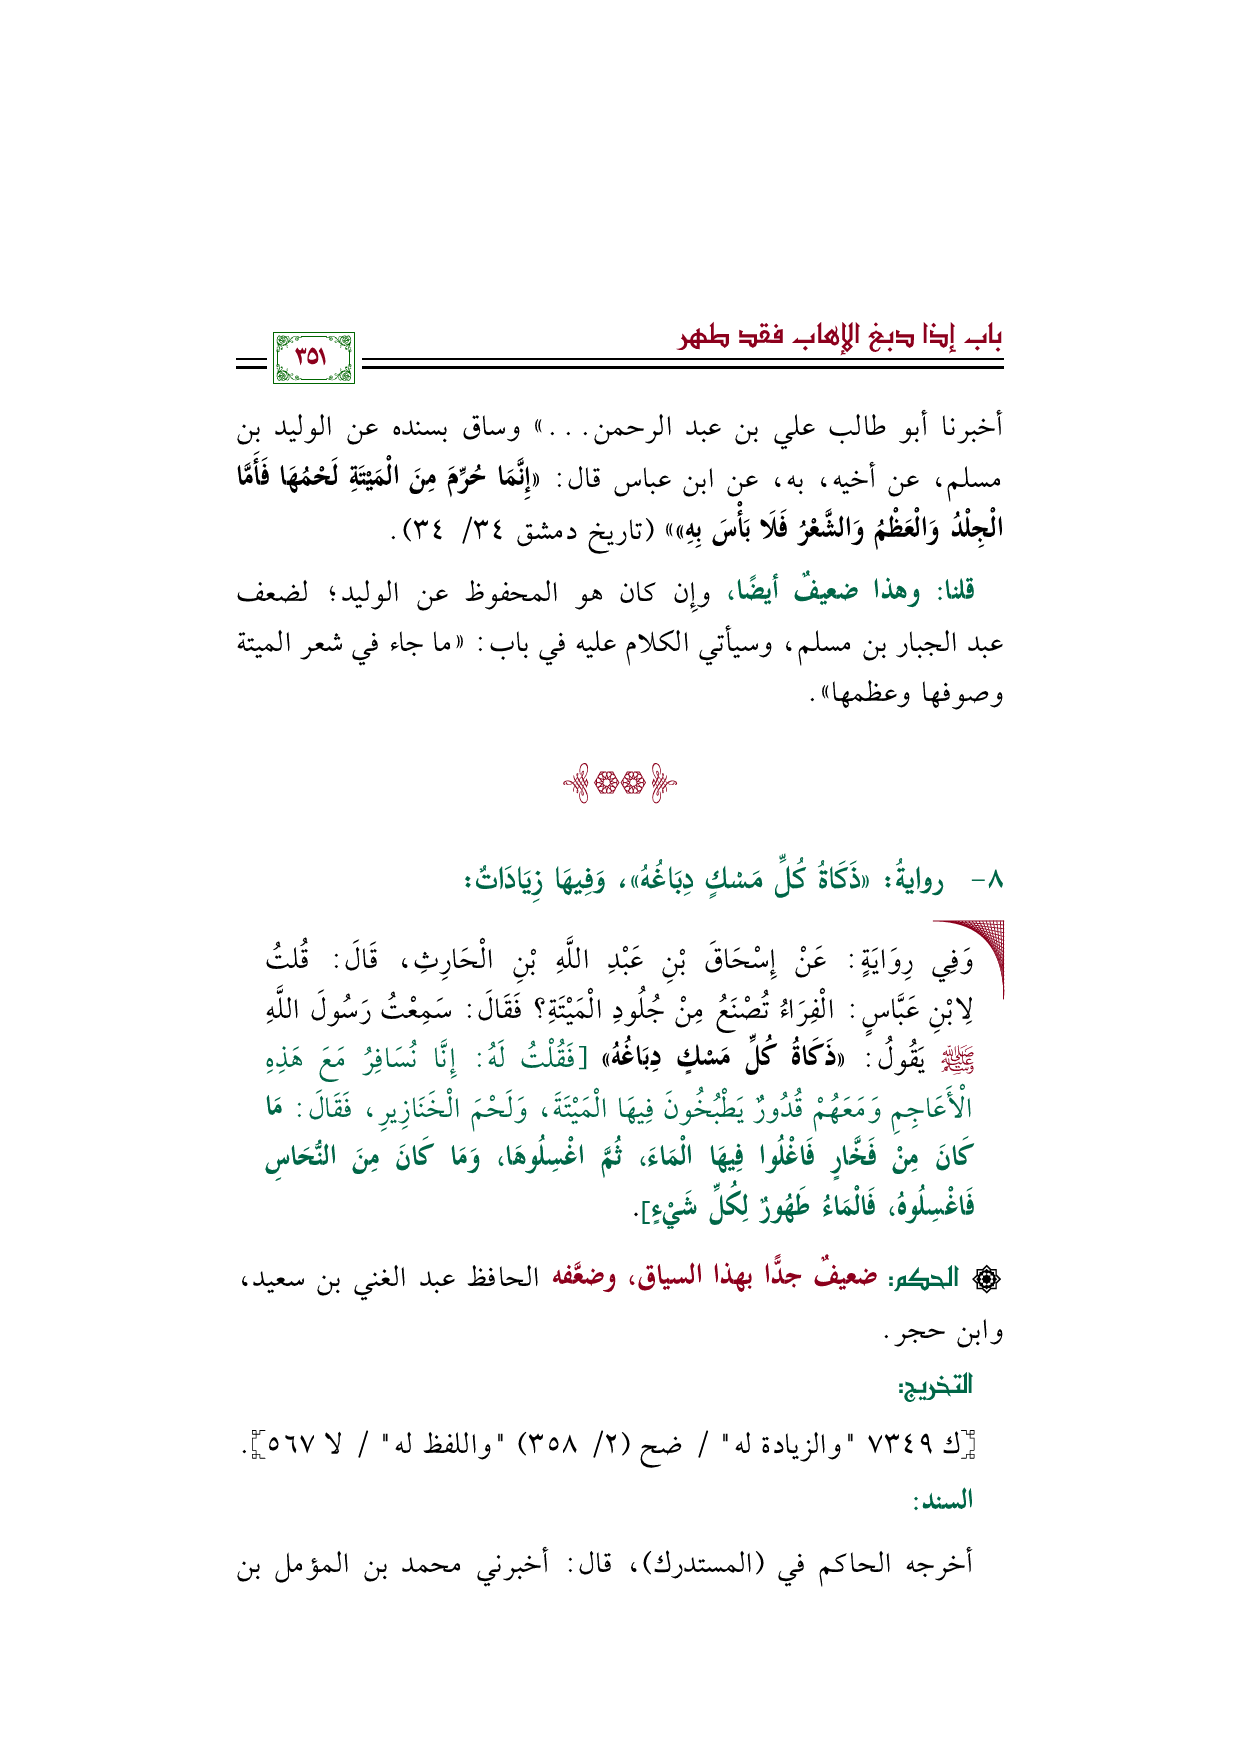 باب إذا دبغ الإهاب فقد طهر
٣٥١
أخبرنا أبو طالب علي بن عبد الرحمن...» وساق بسنده عن الوليد بن
مسلم، عن أخيه، به، عن ابن عباس قال: «إِنَّمَا حُرِّمَ مِنَ الْمَيْتَةِ لَحْمُهَا فَأَمَّا
الْجِلْدُ وَالْعَظْمُ وَالشَّعْرُ فَلَا بَأْسَ بِهِ»» (تاريخ دمشق ٣٤/ ٣٤).
قلنا: وهذا ضعيفٌ أيضًا، وإن كان هو المحفوظ عن الوليد؛ لضعف
عبد الجبار بن مسلم، وسيأتي الكلام عليه في باب: «ما جاء في شعر الميتة
وصوفها وعظمها».
٨- روايةُ: «ذَكَاةُ كُلِّ مَسْكٍ دِبَاغُهُ»، وَفِيهَا زِيَادَاتٌ:
وَفِي رِوَايَةٍ: عَنْ إِسْحَاقَ بْنِ عَبْدِ اللَّهِ بْنِ الْحَارِثِ، قَالَ: قُلتُ
لِابْنِ عَبَّاسٍ: الْفِرَاءُ تُصْنَعُ مِنْ جُلُودِ الْمَيْتَةِ؟ فَقَالَ: سَمِعْتُ رَسُولَ اللَّهِ
ﷺ يَقُولُ: «ذَكَاةُ كُلِّ مَسْكٍ دِبَاغُهُ» [فَقُلْتُ لَهُ: إِنَّا نُسَافِرُ مَعَ هَذِهِ
الْأَعَاجِمِ وَمَعَهُمْ قُدُورٌ يَطْبُخُونَ فِيهَا الْمَيْتَةَ، وَلَحْمَ الْخَنَازِيرِ، فَقَالَ: مَا
كَانَ مِنْ فَخَّارٍ فَاغْلُوا فِيهَا الْمَاءَ، ثُمَّ اغْسِلُوهَا، وَمَا كَانَ مِنَ النُّحَاسِ
فَاغْسِلُوهُ، فَالْمَاءُ طَهُورٌ لِكُلِّ شَيْءٍ].
الحكم: ضعيفٌ جدًّا بهذا السياق، وضعَّفه الحافظ عبد الغني بن سعيد،
وابن حجر.
التخريج:
[ك ٧٣٤٩ "والزيادة له" / ضح (٢/ ٣٥٨) "واللفظ له" / لا ٥٦٧].
السند:
أخرجه الحاكم في (المستدرك)، قال: أخبرني محمد بن المؤمل بن